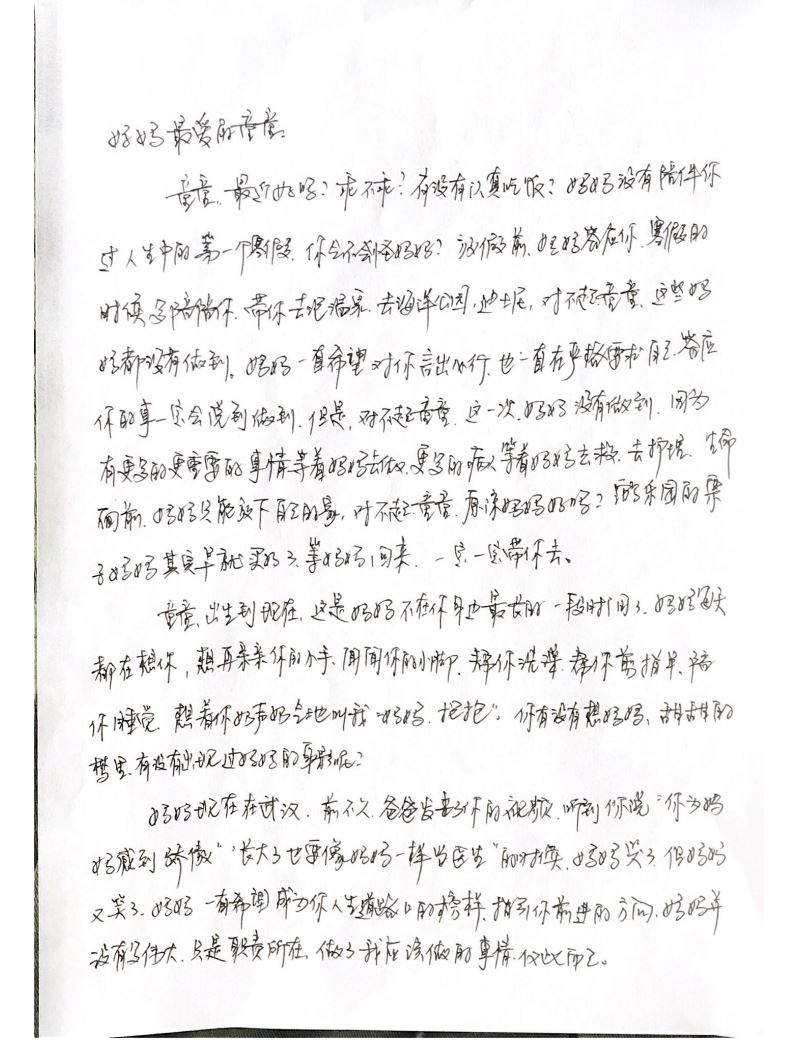 妈妈最爱的童童：
童童，最近好吗？乖不乖？有没有认真吃饭？妈妈没有陪伴你
过人生中的第一个寒假，你会不会怪妈妈？放假前，妈妈答应你，寒假的
时候多陪陪你，带你去泡温泉，去海洋公园，迪士尼，对不起童童，这些妈
妈都没有做到。妈妈一直希望对你言出必行，也一直在严格要求自己，答应
你的事一定会说到做到，但是，对不起童童，这一次，妈妈没有做到，因为
有更多的更重要的事情等着妈妈去做，更多的病人等着妈妈去救，去护理，生命
面前，妈妈只能放下自己的家，对不起童童，原谅妈妈好吗？乐园的票
子妈妈其实早就买好了，等妈妈回来，一定一定带你去。
童童，出生到现在，这是妈妈不在你身边最长的一段时间了，妈妈每天
都在想你，想再亲亲你的小手，闻闻你的小脚，帮你洗澡，帮你剪指甲，陪
你睡觉，想着你奶声奶气地叫我“妈妈，抱抱”。你有没有想妈妈，甜甜的
梦里，有没有出现过妈妈的身影呢？
妈妈现在在武汉，前不久，爸爸发来了你的视频，听到你说“你为妈
妈感到骄傲”“长大了也要像妈妈一样当医生”的时候，妈妈哭了，但妈妈
又笑了，妈妈一直希望成为你人生道路上的榜样，指引你前进的方向，妈妈并
没有多伟大，只是职责所在，做了我应该做的事情，仅此而已。